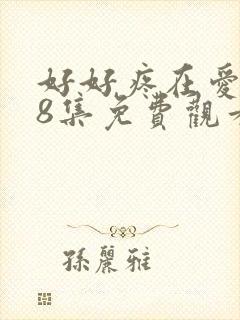 好好疼在爱
8集免費觀
孫麗雅